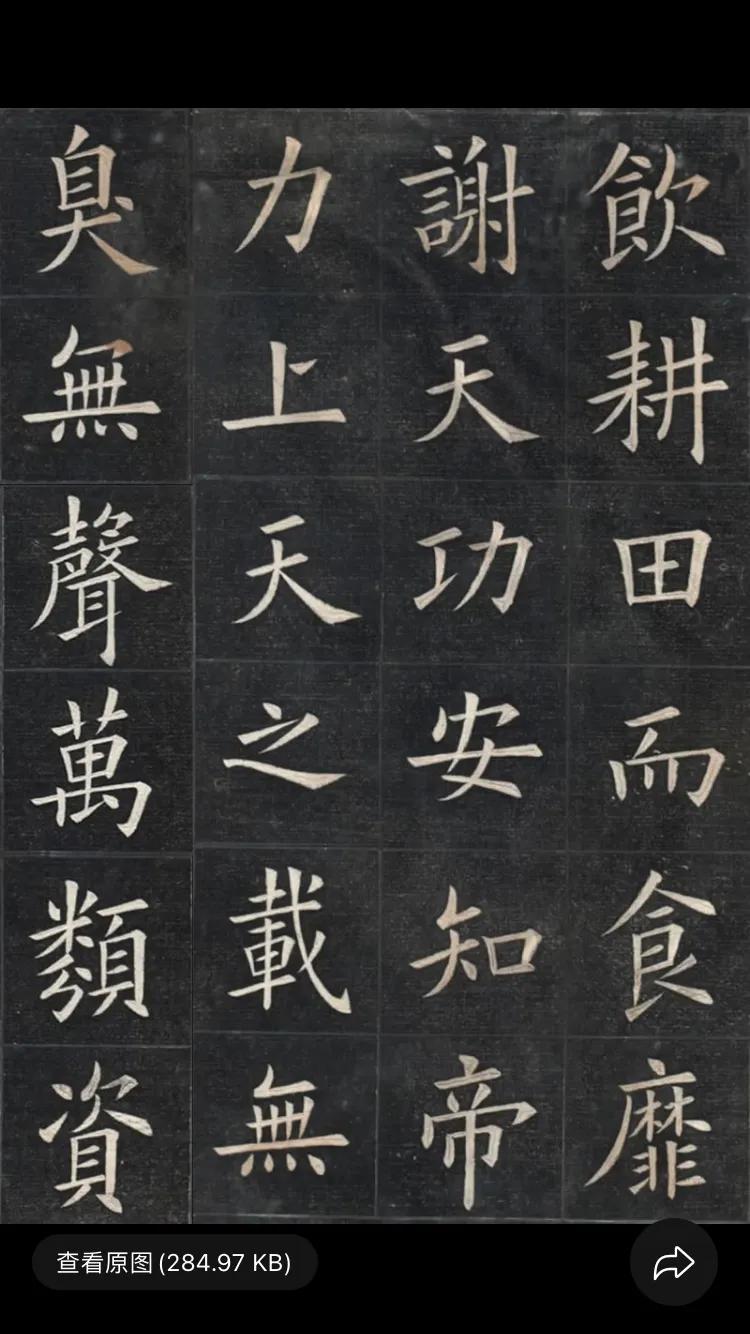 飲耕田而食靡
謝天功安知帝
力上天之載無
臭無聲萬類資
查看原图(284.97 KB)